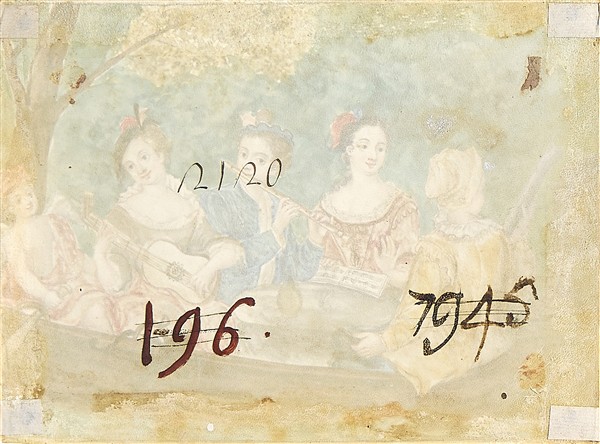 2120
196.
7945